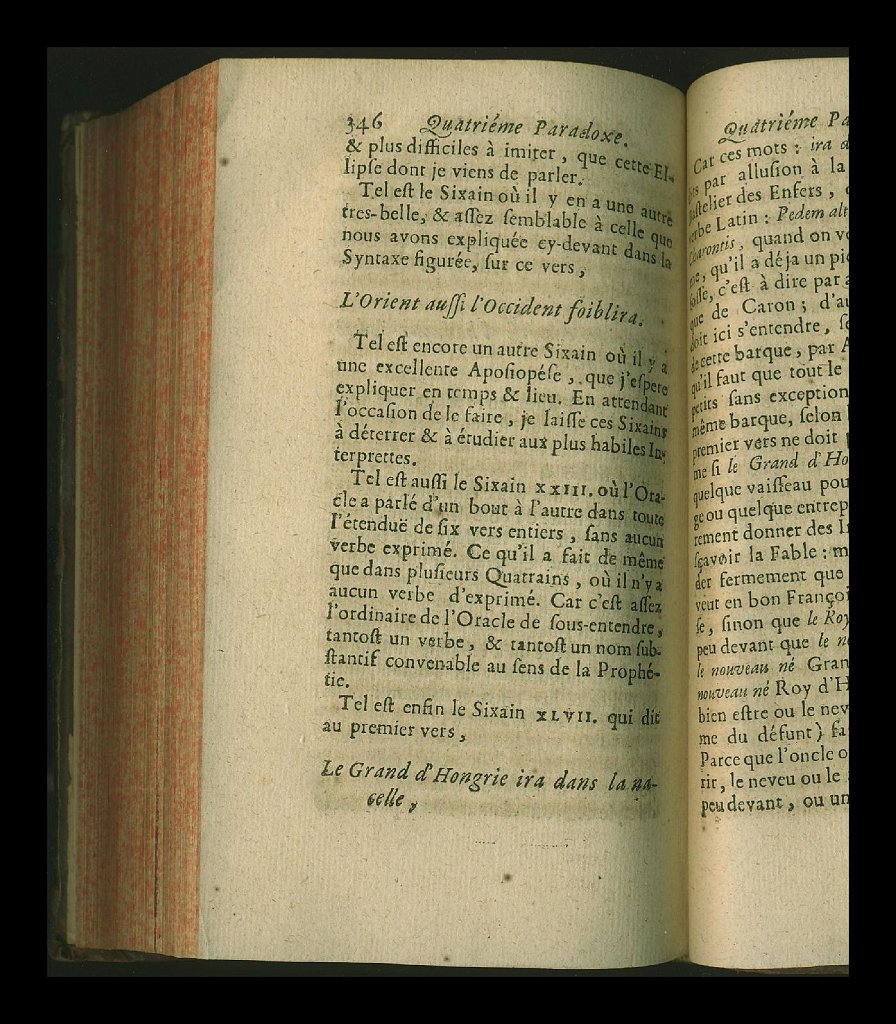 346 Quatriéme Paradoxe.
& plus difficiles à imiter, que cette El-
lipse dont je viens de parler.
Tel est le Sixain où il y en a une autre
tres-belle, & assez semblable à celle que
nous avons expliquée cy-devant dans la
Syntaxe figurée, sur ce vers,
L'Orient aussi l'Occident foiblira.
Tel est encore un autre Sixain où il y a
une excellente Aposiopése, que j'espere
expliquer en temps & lieu. En attendant
l'occasion de le faire, je laisse ces Sixains
à déterrer & à étudier aux plus habiles In-
terprettes.
Tel est aussi le Sixain XXIII. où l'Ora-
cle a parlé d'un bout à l'autre dans toute
l'étenduë de six vers entiers, sans aucun
verbe exprimé. Ce qu'il a fait de même
que dans plusieurs Quatrains, où il n'y a
aucun verbe d'exprimé. Car c'est assez
l'ordinaire de l'Oracle de sous-entendre,
tantost un verbe, & tantost un nom sub-
stantif convenable au sens de la Prophé-
tie.
Tel est enfin le Sixain XLVII. qui dit
au premier vers,
Le Grand d'Hongrie ira dans la na-
celle,
Quatriéme Pa
Car ces mots: ira d
par allusion à la
des Enfers,
Latin: Pedem alt
quand on v
qu'il a déja un pi
c'est à dire par
que de Caron; d'au
doit ici s'entendre, se
de cette barque, par A
qu'il faut que tout le
petits sans exception
même barque, selon
premier vers ne doit
me si le Grand d'Ho
quelque vaisseau pou
ge ou quelque entrep
rement donner des I
sçavoir la Fable: m
der fermement que
veut en bon Françoi
se, sinon que le Roy
peu devant que le n
le nouveau né Gran
nouveau né Roy d'H
bien estre ou le nev
me du défunt) fa
Parce que l'oncle o
rir, le neveu ou le
peu devant, ou un